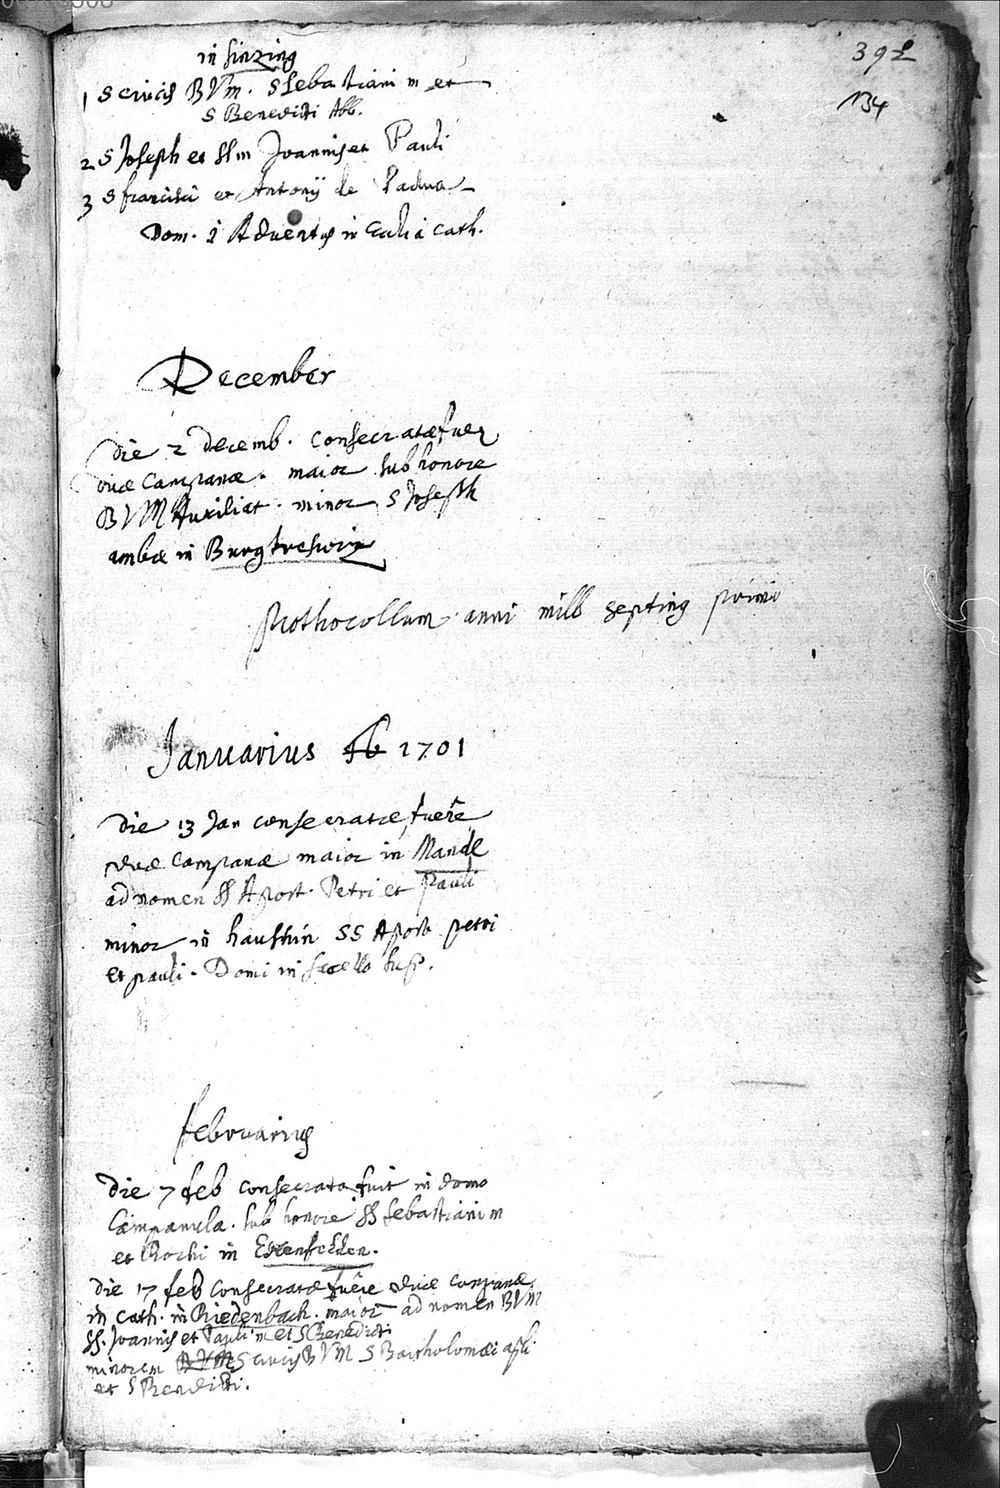 392
134
in Sinzing
1 S crucis BVM. S Sebastiani m et
S Benedicti Abb.
2 S Joseph et SS m Joannis et Pauli
3 S francisci et Antonij de Padua
Dom. 1 Adventus in Eccli a Cath.
December
Die 2 decemb. consecratæ fuer
duæ Campanæ. maior sub honore
BVM Auxiliat. minor S Joseph
ambæ in
Prothocollum anni mill septing primi
Januarius 1701
Die 13 Jan consecratæ fuere
duæ Campanæ maior in Mandl
ad nomen SS Apost. Petri et Pauli
minor in haushin SS Apost petri
et pauli. Domi in sacello
februarius
Die 7 feb consecrata fuit in domo
Campanula. sub honore SS Sebastiani m
et Rochi in Eggenfelden.
Die 17 feb consecratæ fuere duæ campanæ
in cath. in Riedenbach. maior ad nomen BVM
SS. Joannis et Pauli m et S Benedicti
minorem BVM S crucis BVM S Bartholomæi apli
et S Benedicti.